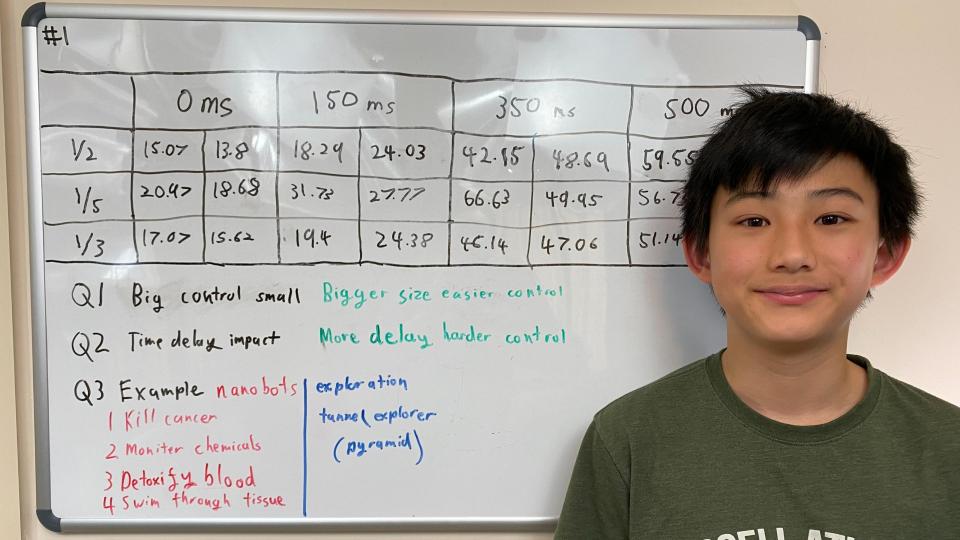 #1
0 ms 150 ms 350 ms 500
1/2 15.07 13.8 18.29 24.03 42.15 48.69 59.55
1/5 20.97 18.68 31.73 27.77 66.63 49.95 56.7
1/3 17.07 15.62 19.4 24.38 46.14 47.06 51.14
Q1 Big control small Bigger size easier control
Q2 Time delay impact More delay harder control
Q3 Example nanobots exploration
1 Kill cancer tunnel explorer
2 Moniter chemicals (pyramid)
3 Detoxify blood
4 Swim through tissue